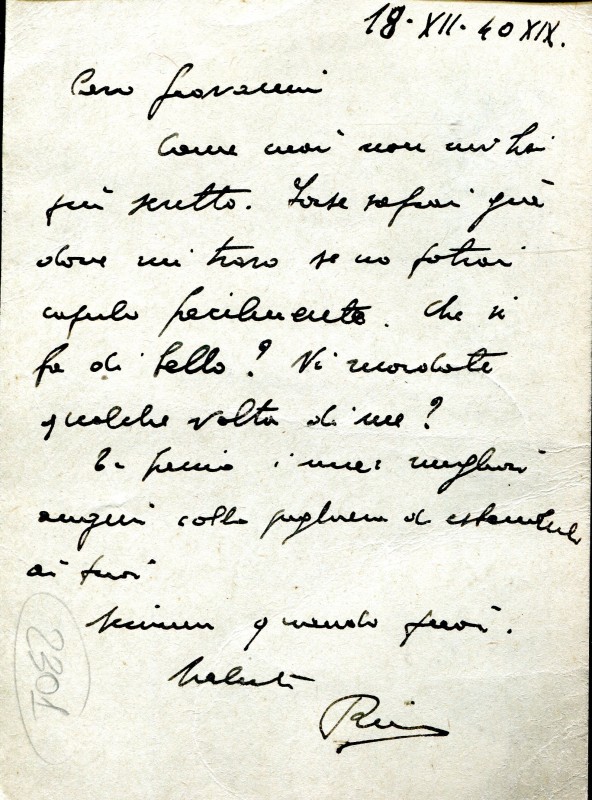 18-XII-40 XIX.
Caro Giovanni
Come mai non mi hai
più scritto. Forse saprai già
dove mi trovo se no potrai
capirlo facilmente. Che si
fa di bello? Vi ricordate
qualche volta di me?
Ti invio i miei migliori
auguri colla preghiera di estenderli
ai tuoi
Scrivimi quando puoi.
Saluti
2301